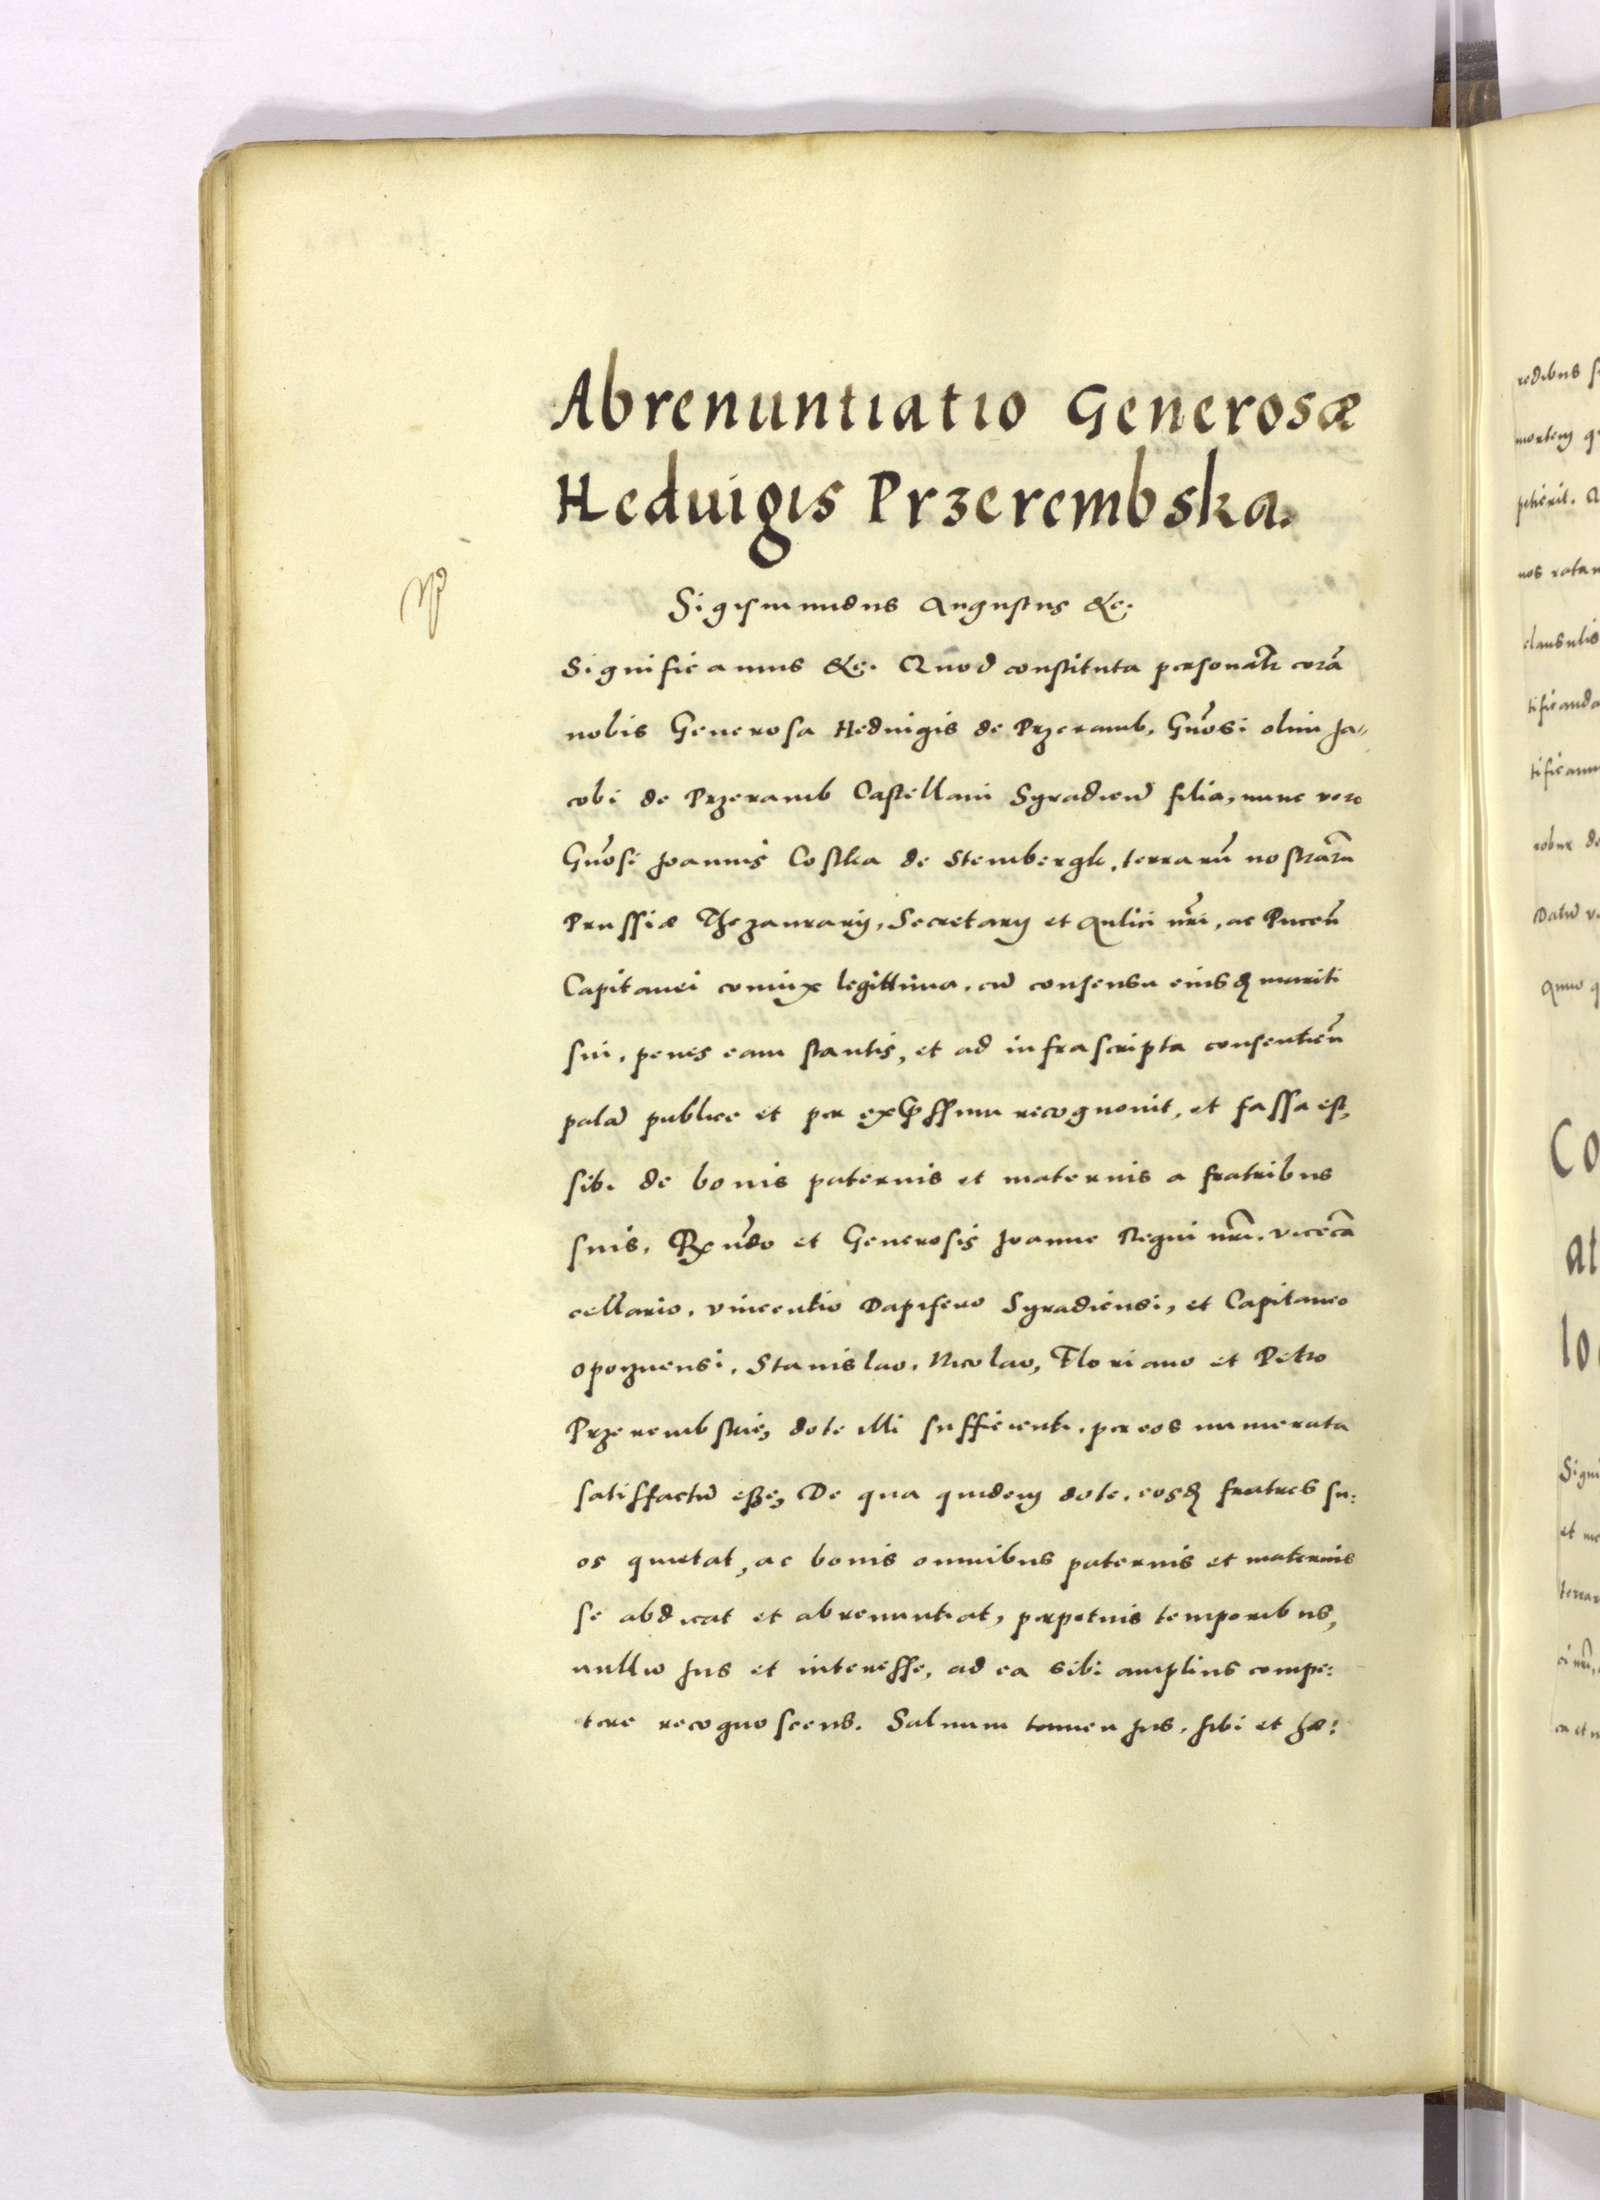 Abrenuntiatio Generosæ
Heduigis Przerembska.
Sigismundus Augustus &c.
Significamus &c. Quod constituta personalr corã
nobis Generosa Heduigis de Przeramb, Gñosi olim Ja„
cobi de Przeramb Castellani Syradieñ filia, nunc vero
Gñosi Joannis Costka de Stembergk, terrarũ nostrarũ
Prussiæ Thezaurarij, Secretarij et Aulici nr̃i, ac Puceñ
Capitanei coniux legittima, cũ consensu eiusdẽ mariti
sui, penes eam stantis, et ad infrascripta consentieñ
palã publice et per expressum recognouit, et fassa est,
sibi de bonis paternis et maternis a fratribus
suis, Rx̃ñdo et Generosis Joanne Regni nr̃i, vicecã
cellario, vincentio Dapifero Syradiensi, et Capitaneo
opoznensi, Stanislao, Nicolao, Floriano et Petro
Przerembskie, dote illi sufficienti, per eos numerata
satisfactũ esse, De qua quidem dote, eosdẽ fratres su:
os quietat, ac bonis omnibus paternis et maternis
se abdicat et abrenuntiat, perpetuis temporibus,
nullũ Jus et interesse, ad ea sibi amplius compe:
tere recognoscens. Saluum tamen Jus, sibi et hæ:
redibus
mortem
petierit.
nos
clausulis
tificanda
robur de
Datũ
Anno
Co
at
Signi
et